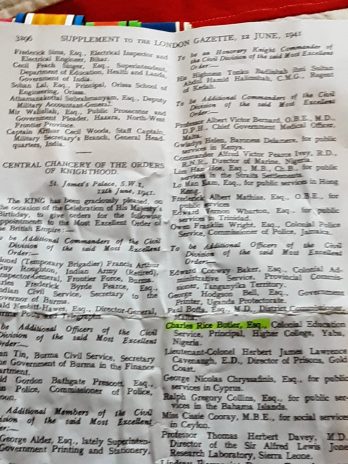 3296 SUPPLEMENT TO THE LONDON GAZETTE, 12 JUNE, 1941
Frederick Sims, Esq., Electrical Inspector and
Electrical Engineer, Bihar.
Cecil Pearh Singer, Esq., Superintendent,
Department of Education, Health and Lands,
Government of India.
Sohan Lal, Esq., Principal, Orissa School of
Engineering, Orissa.
Esq., Deputy
Military Accountant-General.
Mir Esq., Public Prosecutor and
Government Pleader, Hazara, North-West
Frontier Province.
Captain Arthur Cecil Woods, Staff Captain,
Military Secretary's Branch, General Head-
quarters, India.
CENTRAL CHANCERY OF THE ORDERS
OF KNIGHTHOOD.
St. James's Palace, S.W.1,
12th June, 1941.
The KING has been graciously pleased, on
the occasion of the Celebration of His Majesty's
Birthday, to give orders for the following
appointments to the Most Excellent Order of
the British Empire:—
To be Additional Commanders of the Civil
Division of the said Most Excellent
Order:—
(Temporary Brigadier) Francis Arthur
Guy Roughton, Indian Army (Retired),
Inspector-General, Frontier Force, Burma.
Charles Frederick Byrde Pearce, Esq.,
Indian Civil Service, Secretary to the
Governor of Burma.
Hawes, Esq., Director-General,
be Additional Officers of the Civil
Division of the said Most Excellent
Order:—
Tin, Burma Civil Service, Secretary
the Government of Burma in the Finance
Department.
Gordon Bathgate Prescott, Esq.,
Police, Commissioner of Police,
Additional Members of the Civil
Division of the said Most Excellent
Order:—
George Alder, Esq., lately Superinten-
Government Printing and Stationery,
To be an Honorary Knight Commander of
the Civil Division of the said Most Excellent
Order:—
His Highness Tunku Badlishah ibni Sultan
Abdul Hamid Halimshah, C.M.G., Regent
of Kedah.
To be Additional Commanders of the Civil
Division of the said Most Excellent
Order:—
Albert Victor Bernard, O.B.E., M.D.,
D.P.H., Chief Government Medical Officer,
Malta.
Gwladys Helen, Baroness Delamere, for public
services in Kenya.
Commander Alfred Victor Pearce Ivey, R.D.,
R.N.R., Director of Marine, Nigeria.
Lim Han Hoe, Esq., M.B., Ch.B., for public
services in the Straits Settlements.
Lo Man Kam, Esq., for public services in Hong
Kong.
Frederick Albert Mathias, Esq., O.B.E., for
public services in
Edward Vernon Wharton, Esq., for public
services in Trinidad.
Owen Franklin Wright, Esq., Colonial Police
Service, Commissioner of Police, Jamaica.
To be Additional Officers of the Civil
Division of the said Most Excellent
Order:—
Edward Conway Baker, Esq., Colonial Ad-
ministrative Service, Provincial Commis-
sioner, Tanganyika Territory.
George Hodgson Bell, Esq., Government
Printer, Uganda Protectorate.
Paul Boffa, Esq., M.D.,
Charles Rice Butler, Esq., Colonial Education
Service, Principal, Higher College, Yaba,
Nigeria.
Lieutenant-Colonel Herbert James Lawrence
Cavenagh, E.D., Director of Prisons, Gold
Coast.
George Nicolas Chrysafinis, Esq., for public
services in Cyprus.
Ralph Gregory Collins, Esq., for public ser-
vices in the Bahama Islands.
Miss Cissie Cooray, M.B.E., for social services
in Ceylon.
Professor Thomas Herbert Davey, M.D.,
Director of the Sir Alfred Lewis Jones
Research Laboratory, Sierra Leone.